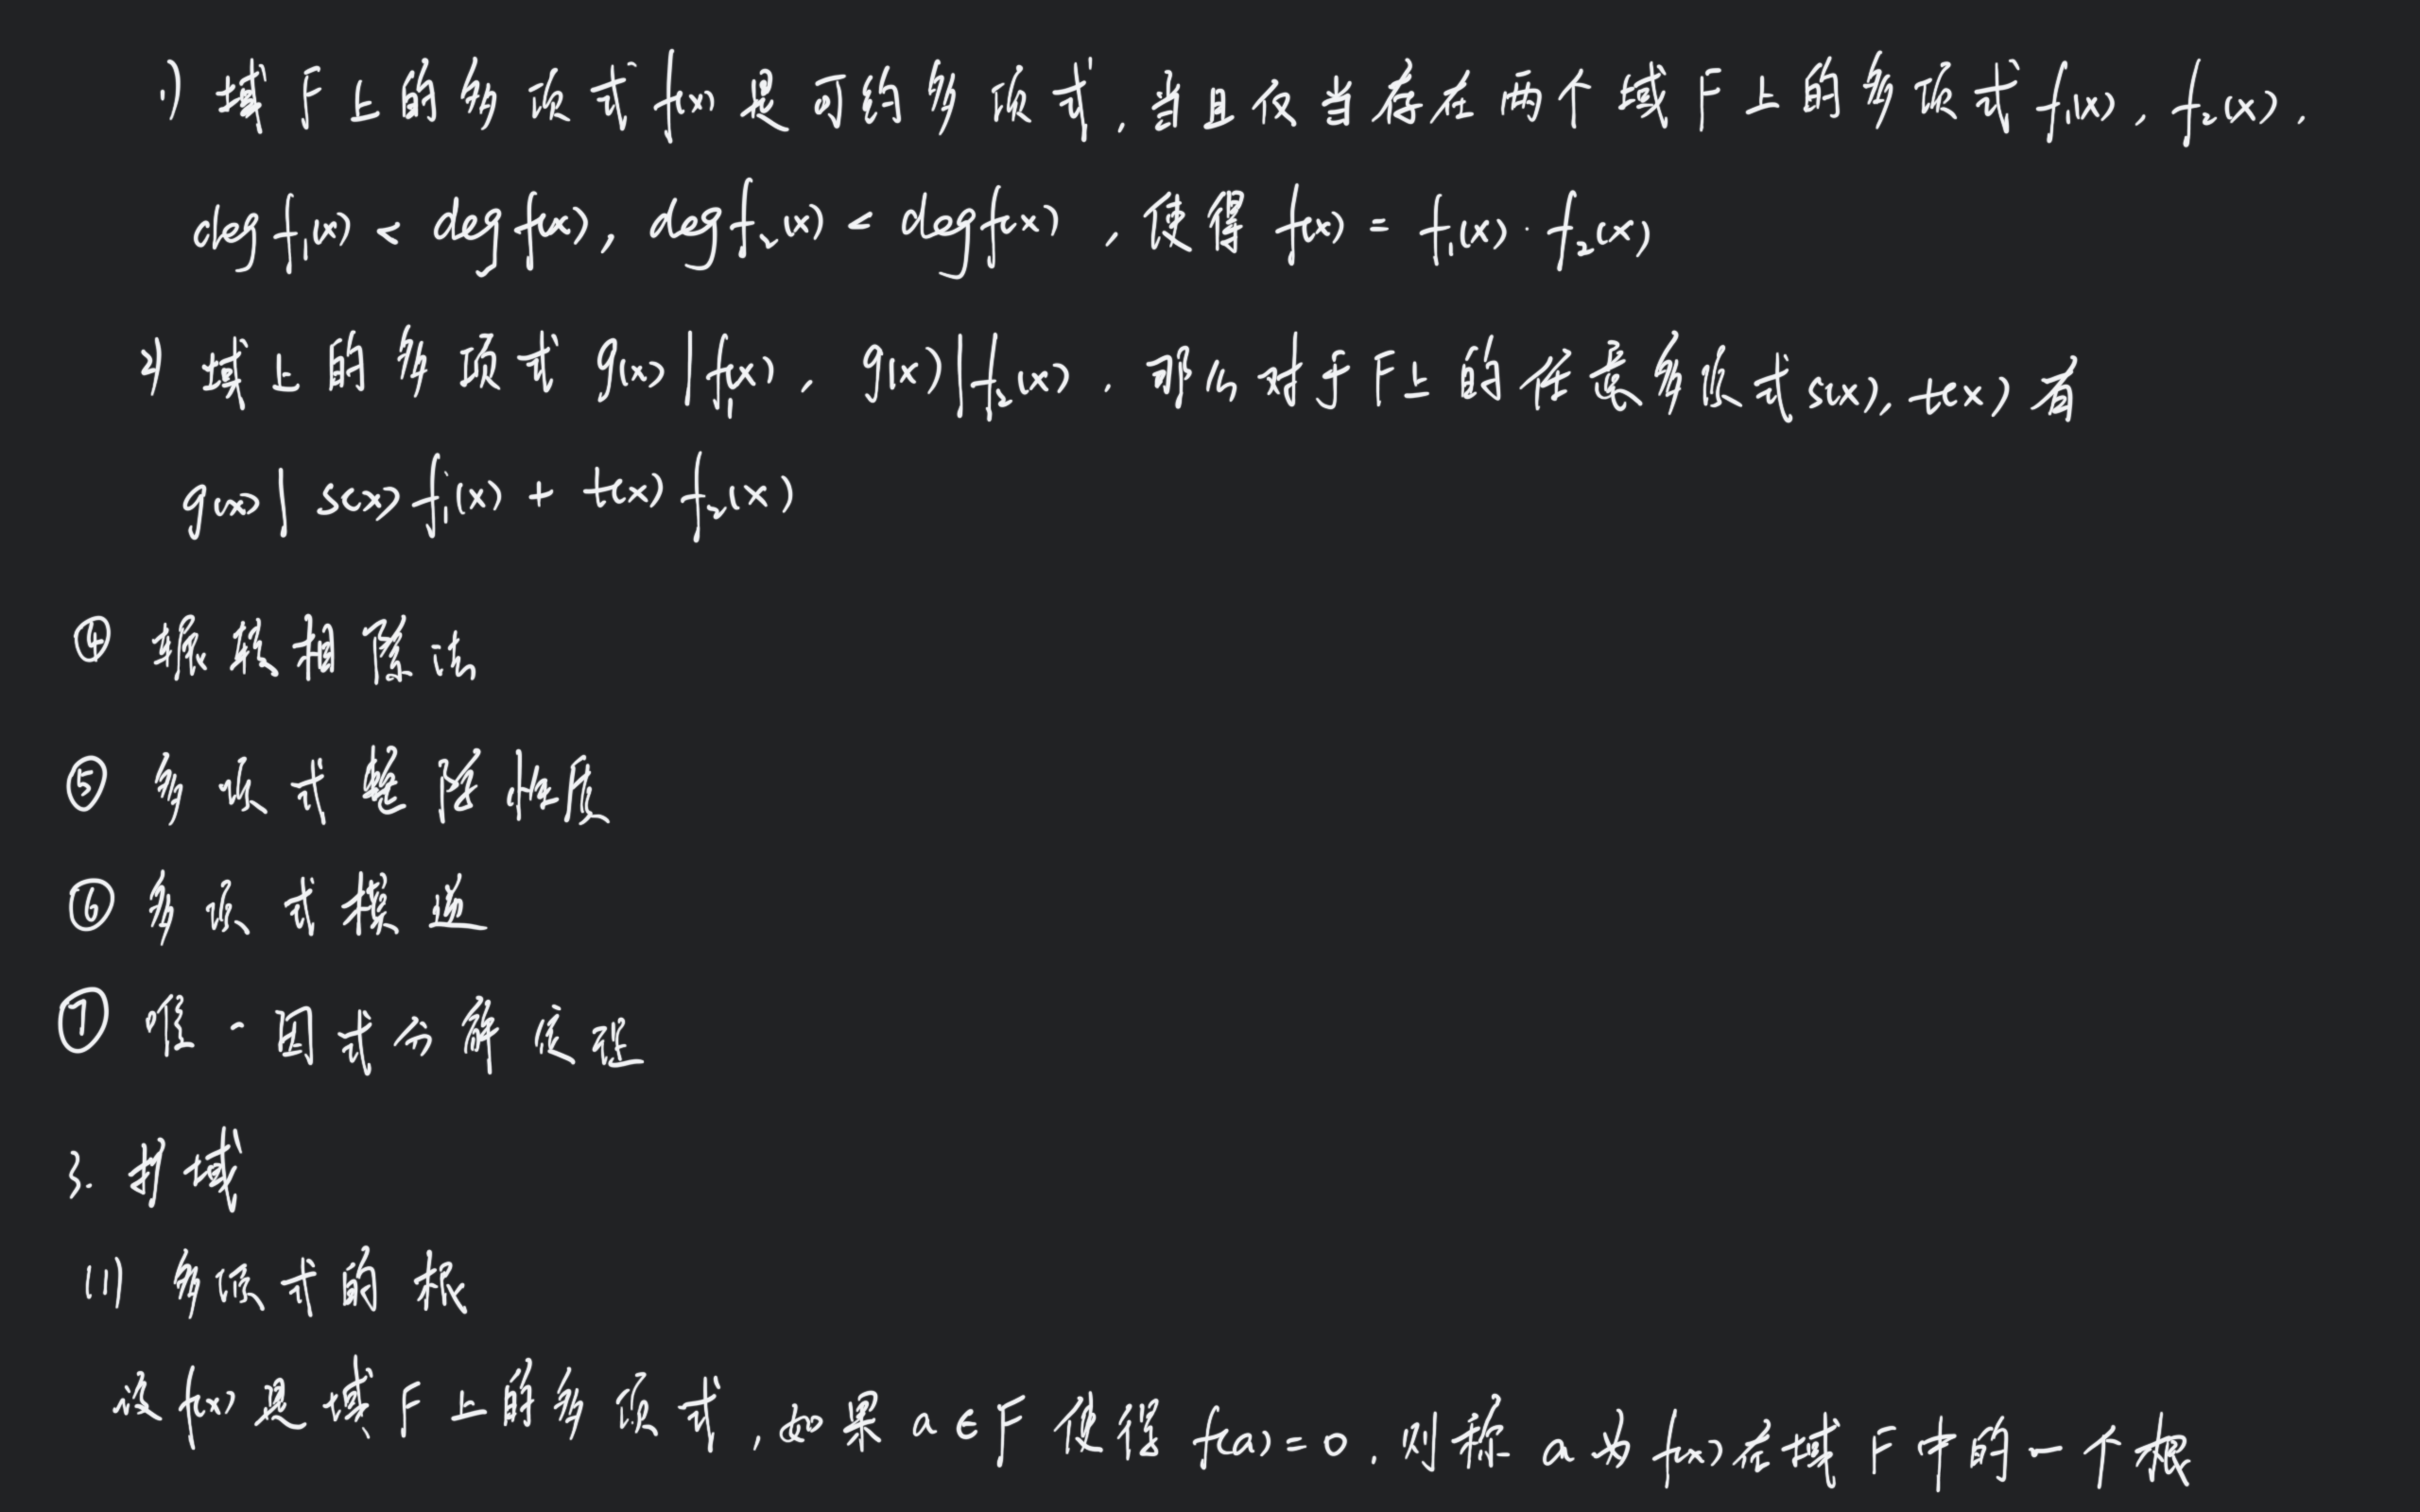 1) 域F上的多项式f(x)是可约多项式,当且仅当存在两个域F上的多项式f₁(x), f₂(x),
deg f₁(x) < deg f(x), deg f₂(x) < deg f(x), 使得 f(x) = f₁(x)·f₂(x)
2) 域上的多项式 g(x)|f₁(x), g(x)|f₂(x), 那么对于F上的任意多项式s(x), t(x)有
g(x)| s(x)f₁(x) + t(x)f₂(x)
④ 辗转相除法
⑤ 多项式整除性质
⑥ 多项式模逆
⑦ 唯一因式分解定理
3. 扩域
(1) 多项式的根
设f(x)是域F上的多项式,如果a∈F使得f(a)=0,则称a为f(x)在域F中的一个根